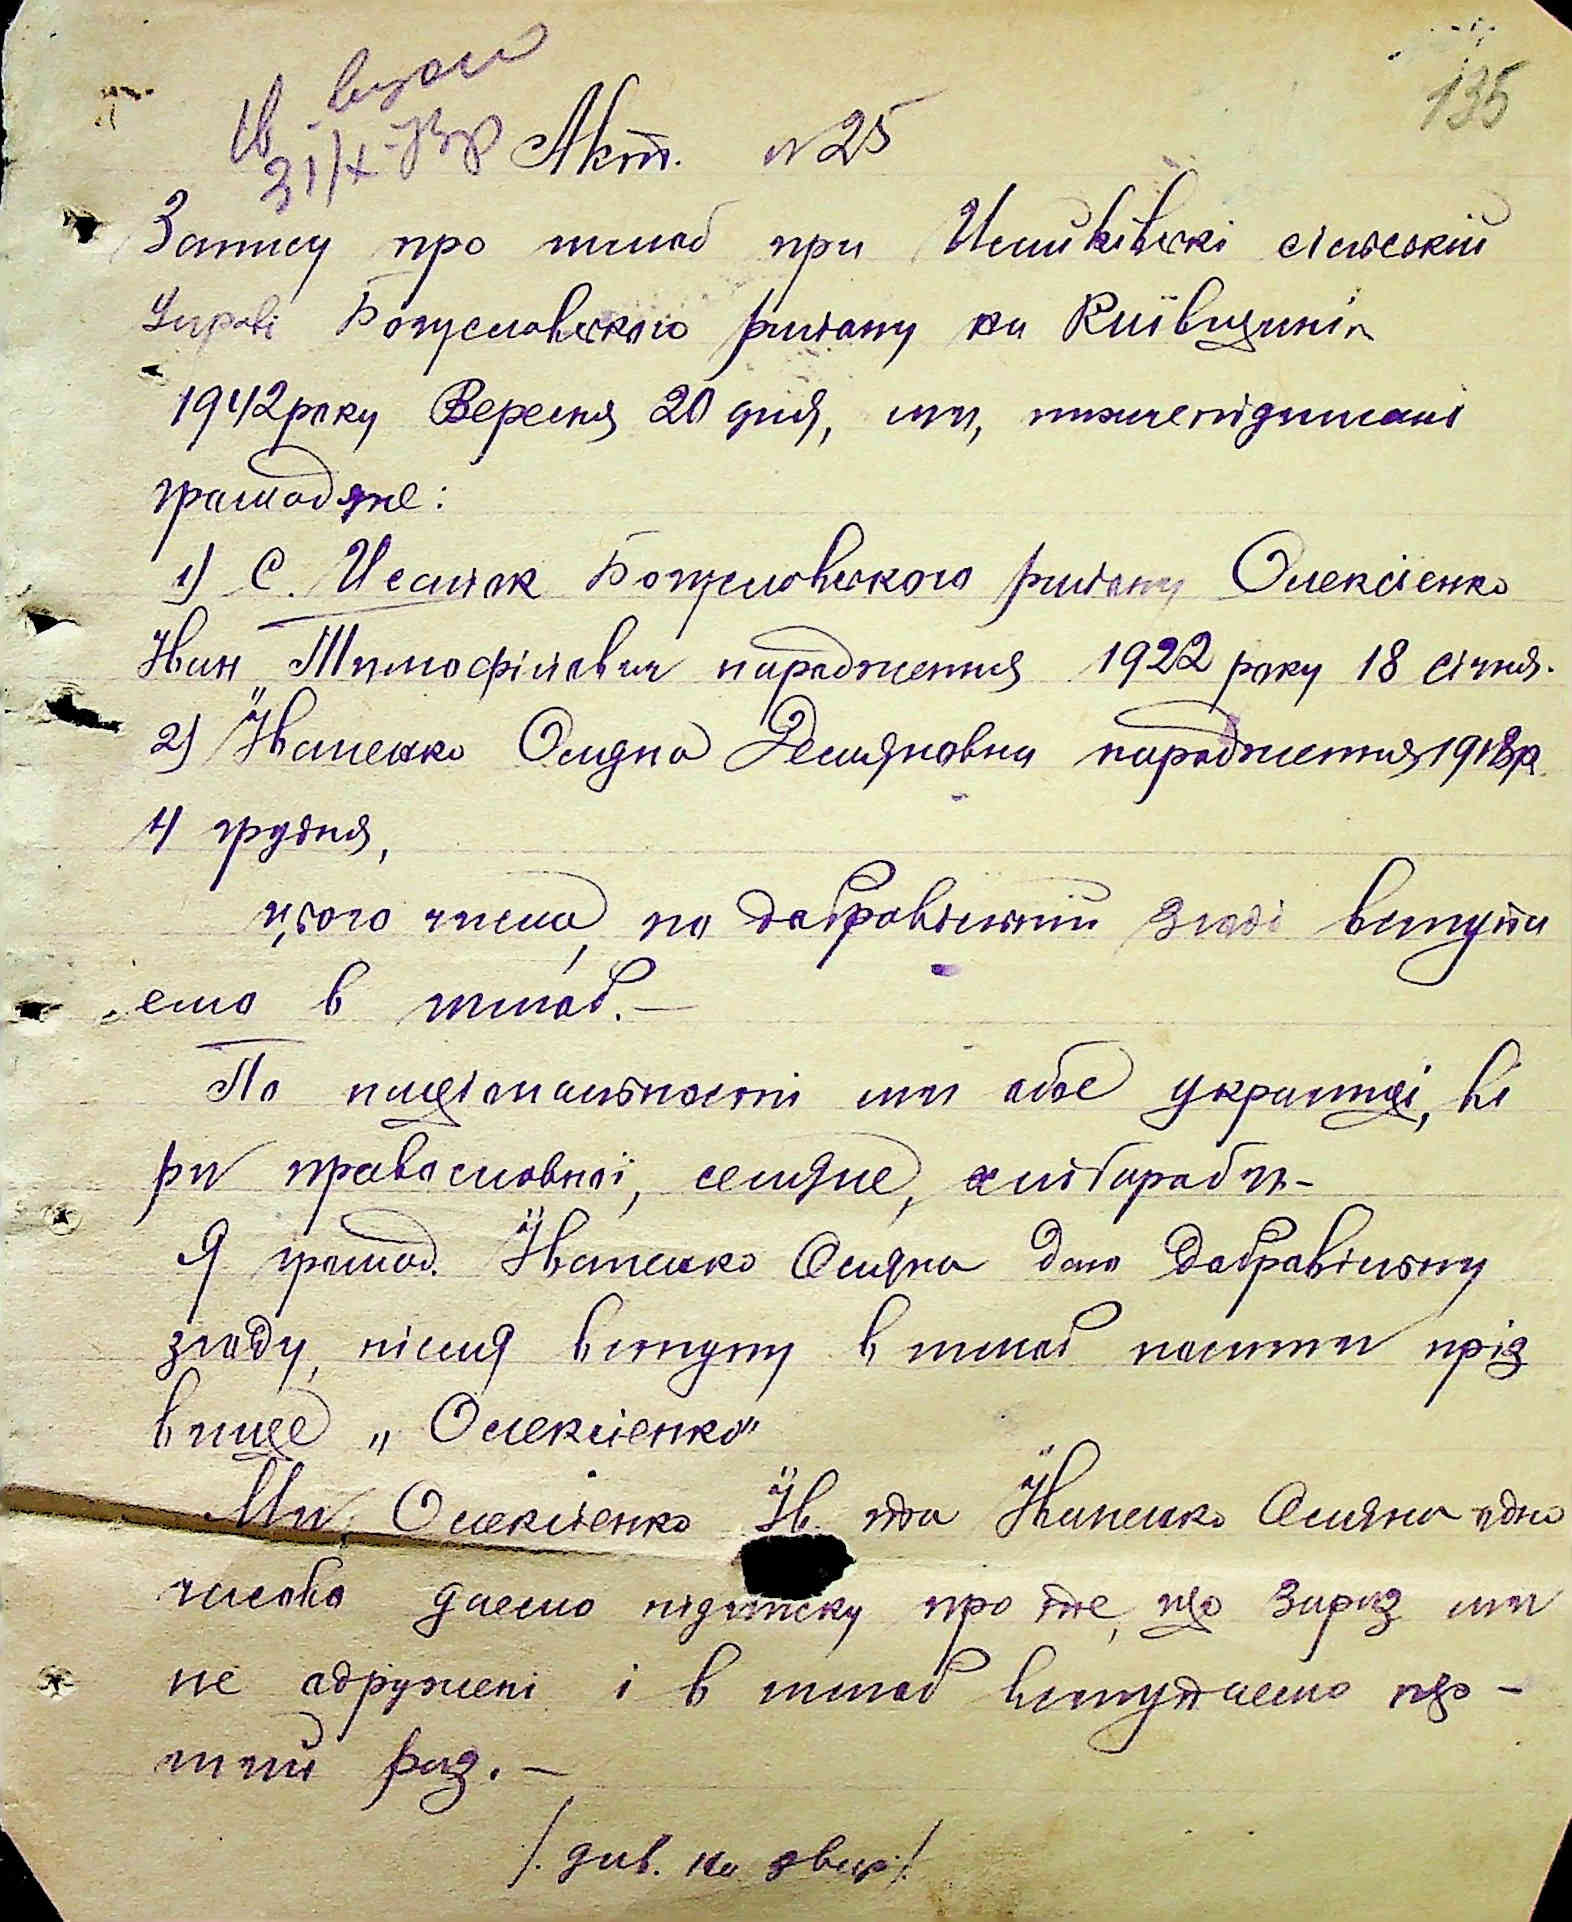 135
31/X-43р
Акт. №25
Запису про шлюб при Исайківські сільській
Управі Богуславського району на Київщині
1942 року Вересня 20 дня, ми, нижчепідписані
громадяне:
1) С. Исайок Богуславського району Олексієнко
Іван Тимофійович народження 1922 року 18 січня.
2) Іваненко Оляна Демяновна народження 1918 р.
4 грудня,
цього числа, по добровільній згоді вступа
емо в шлюб.—
По національності ми обоє украінці, ві
ри православної, селяне, хлібороби-
Я громад. Іваненко Оляна даю добровільну
згоду, після вступу в шлюб носити пріз
вище „Олексієнко"
Ми, Олексієнко Ів. та Іваненко Оляна одно
часово даємо підписку про те, що зараз ми
не одружені і в шлюб вступаємо пер-
ший раз.—
/. див. на звор./.